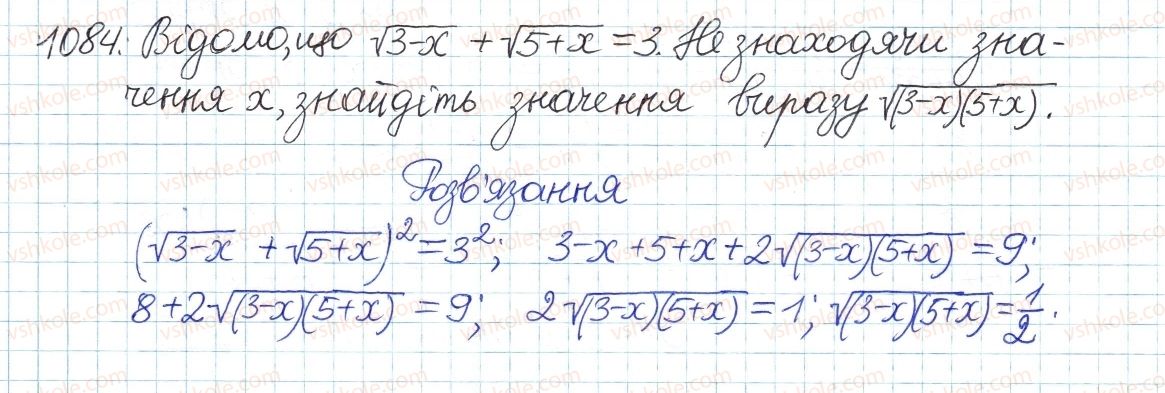 1084. Відомо, що √(3-x) + √(5+x) = 3. Не знаходячи зна-
чення x, знайдіть значення виразу √((3-x)(5+x)).
Розв'язання
(√(3-x) + √(5+x))² = 3²; 3-x+5+x+2√((3-x)(5+x)) = 9;
8+2√((3-x)(5+x)) = 9; 2√((3-x)(5+x)) = 1; √((3-x)(5+x)) = 1/2.